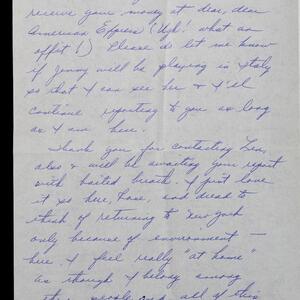 receive your money at dear, dear
American Express (Ugh! what an
Please do let me know
if Jenny will be playing in Italy
so that I can see her & I'll
continue reporting to you as long
as I am here.
Thank you for contacting
also & will be awaiting your report
with baited breath. I just love
it so here, and dread to
think of returning to New York
only because of environment —
here I feel really "at home"
as though I belong among
people and all of this